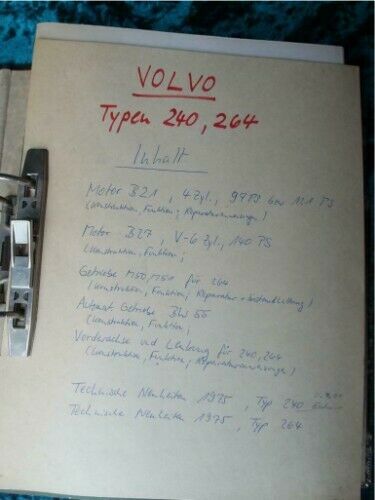 VOLVO
Typen 240, 264
Inhalt
Motor B21, 4 Zyl., 97 PS bzw 121 PS
(Konstruktion, Funktion; Reparaturanweisungen)
Motor B27, V-6 Zyl., 140 PS
(Konstruktion, Funktion;
Getriebe M50, M51 für 264
(Konstruktion, Funktion, Reparatur +
Automat Getriebe BW 55
(Konstruktion, Funktion;
Vorderachse und Lenkung für 240, 264
(Konstruktion, Funktion; Reparaturanweisungen)
Technische Neuheiten 1975, Typ 240
Technische Neuheiten 1975, Typ 264